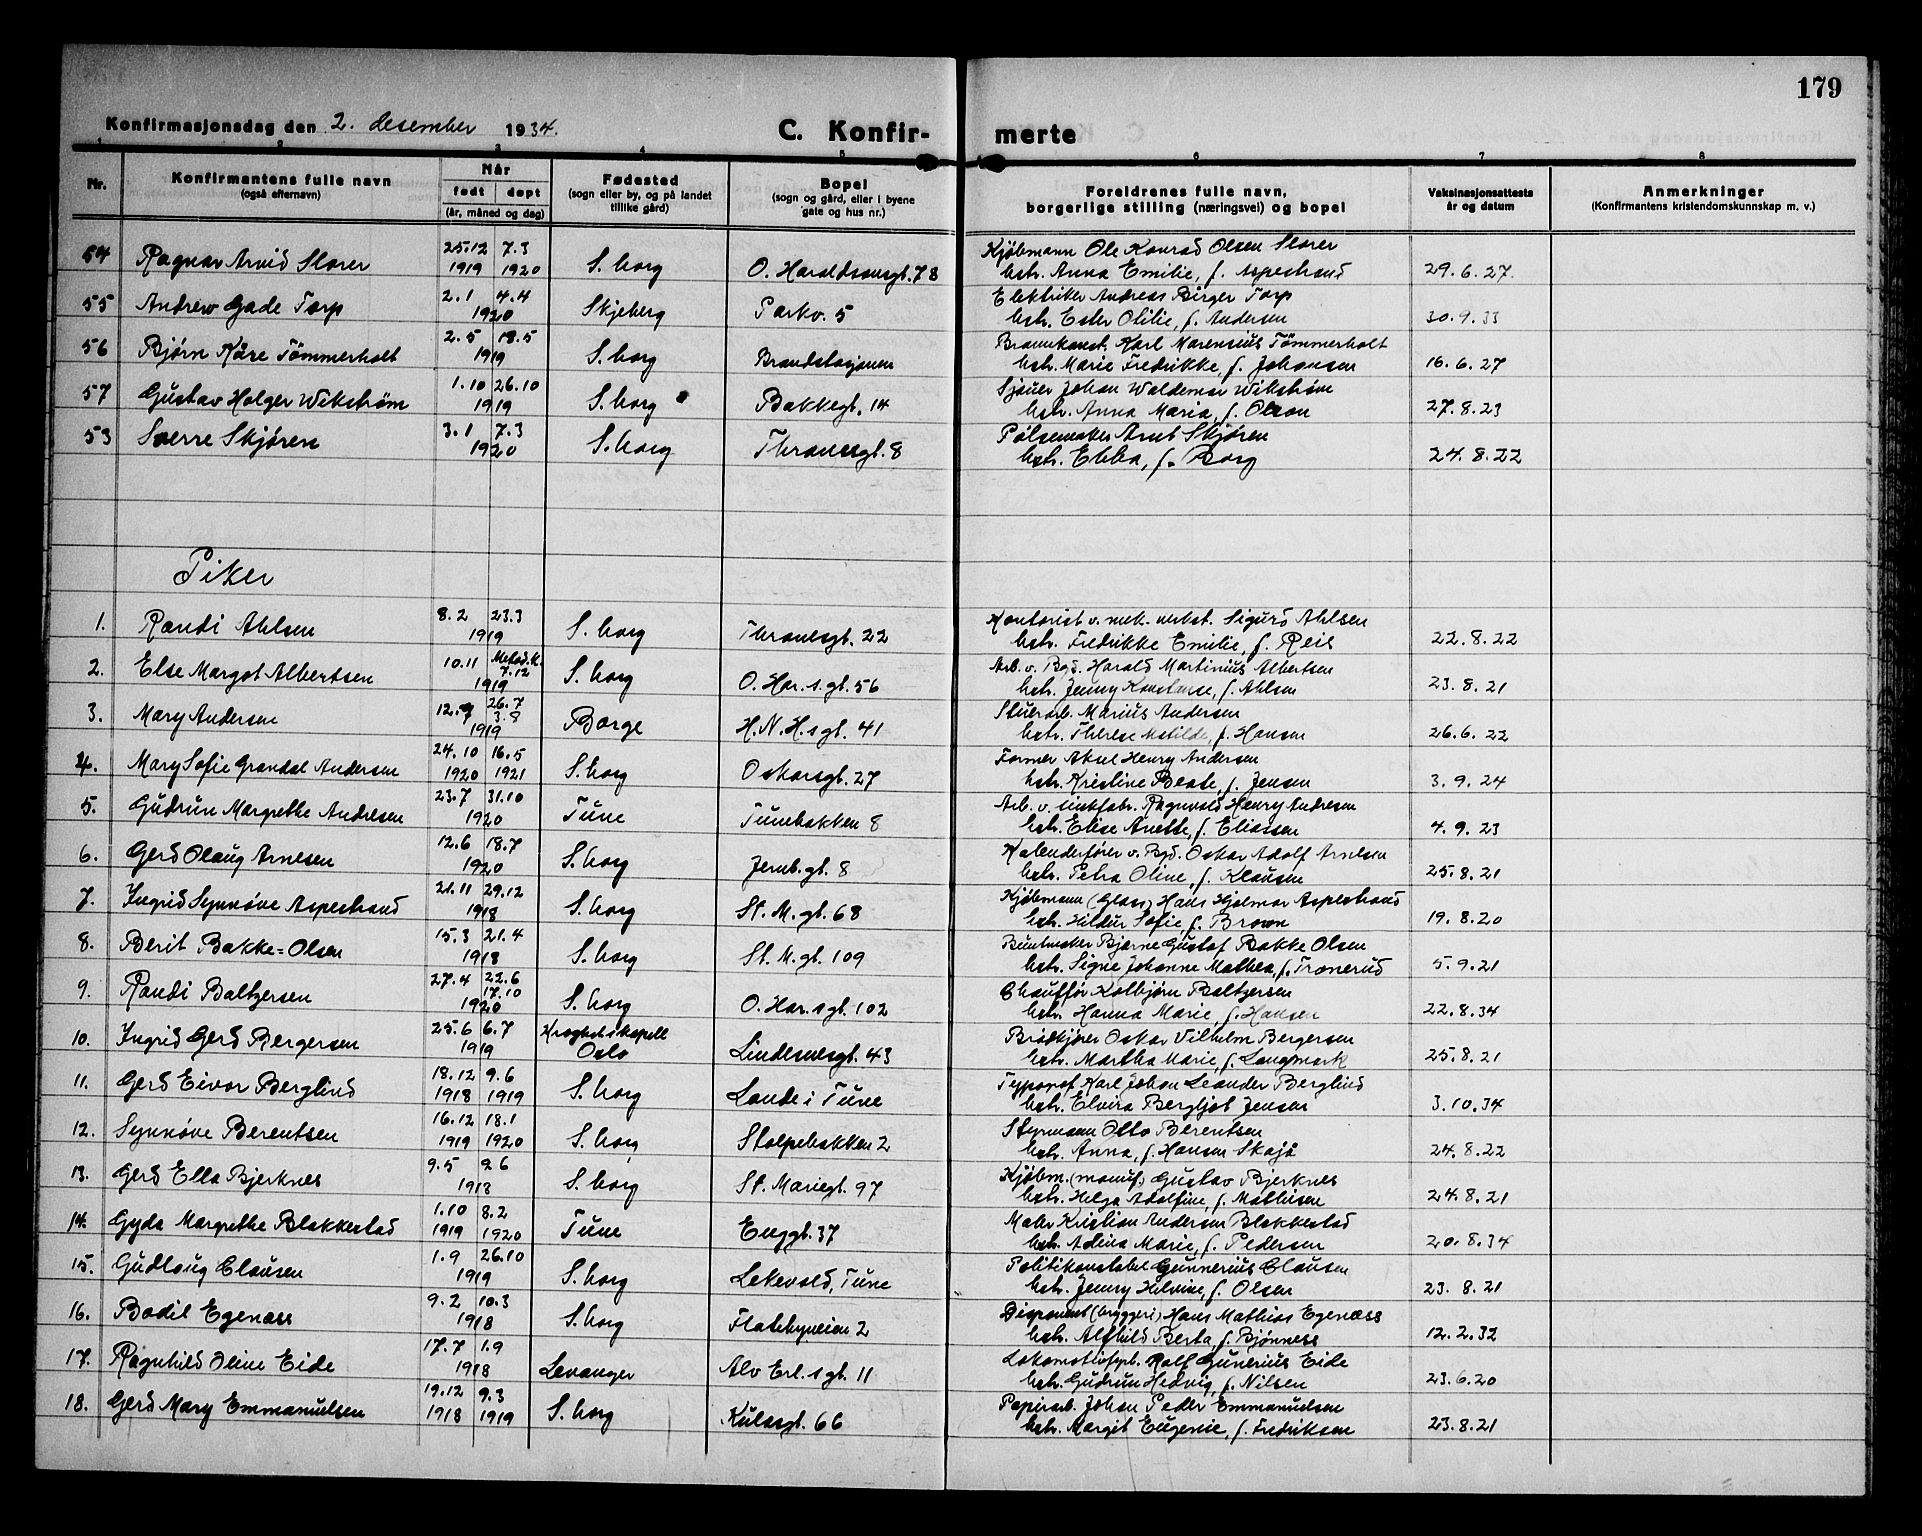 179
Konfirmasjonsdag den 2. desember 1934.
C. Konfir-
merte
1 2 3 4 5 6 7 8
Nr.
Konfirmantens fulle navn
(også efternavn)
Når
født døpt
(år, måned og dag)
Fødested
(sogn eller by, og på landet
tillike gård)
Bopel
(sogn og gård, eller i byene
gate og hus nr.)
Foreldrenes fulle navn,
borgerlige stilling (næringsvei) og bopel
Vaksinasjonsattests
år og datum
Anmerkninger
(Konfirmantens kristendomskunnskap m. v.)
54 Ragnar Arvid Slorer 25.12 1919 7.3 1920 S.borg O. Haraldsonsgt. 78 Kjøbmann Ole Konrad Olsen Slorer
hstr. Anna Emilie, f. Aspestrand 29.6.27.
55 Andrew Gade Torp 2.1 4.4 1920 Skjeberg Parkv. 5 Elektriker Andreas Birger Torp
hstr. Ester Otilie, f. Andersen 30.9.33
56 Bjørn Kåre Tömmerholt 2.5 18.5 1919 S.borg Brandstasjonen Brannkonst. Karl Marensius Tömmerholt
hstr. Marie Fredrikke, f. Johansen 16.6.27
57 Gustav Holger Wikstrøm 1.10 26.10 1919 S.borg Bakkegt. 14 Sjauer Johan Waldemar Wikstrøm
hstr. Anna Maria, f. Olson 27.8.23
53 Sverre Skjøren 3.1 7.3 1920 S.borg Thranesgt. 8 Pølsemaker Arnt Skjøren
hstr. Ebba, f. Borg 24.8.22
Piker
1. Randi Ahlsen 8.2 23.3 1919 S.borg Thranesgt. 22 Kontorist v. mek. verkst. Sigurd Ahlsen
hstr. Fredrikke Emilie, f. Reis 22.8.22
2. Else Margot Albertsen 10.11 Metod.k. 7.12 1919 S.borg O. Har.s gt. 56 Arb. v. Bgd. Harald Martinius Albertsen
hstr. Jenny Konstanse, f. Ahlsen 23.8.21
3. Mary Andersen 26.7 3.8 1919 Borge H.N.H.s gt. 41 Stuerarb. Marius Andersen
hstr. Therese Matilde, f. Hansen 26.6.22
4. Mary Sofie Grandal Andersen 24.10 1920 16.5 1921 S.borg Oskarsgt. 27 Former Aksel Henry Andersen
hstr. Kristine Beate, f. Jensen 3.9.24
5. Gudrun Margrethe Andresen 23.7 31.10 1920 Tune Tunebakken 8 Arb. v. sinkfabr. Ragnvald Henry Andresen
hstr. Elise Anette, f. Eliassen 4.9.23
6. Gerd Olaug Arnesen 12.6 18.7 1920 S.borg Jernb.gt. 8 Kalenderfører v. Bgd. Oskar Adolf Arnesen
hstr. Petra Oline, f. Klausen 25.8.21
7. Ingrid Synnøve Aspestrand 21.11 29.12 1918 S.borg St. M. gt. 68 Kjøbmann (Glass) Hans Hjalmar Aspestrand
hstr. Hildur Sofie, f. Brown 19.8.20
8. Berit Bakke=Olsen 15.3 21.4 1918 S.borg St. M. gt. 109 Buntmaker Bjarne Gustaf Bakke Olsen
hstr. Signe Johanne Mathea, f. Tronerud 5.9.21
9. Randi Baltzersen 27.4 22.6 17.10 1920 S.borg O. Har.s gt. 102 Chauffør Kolbjørn Baltzersen
hstr. Hanna Marie, f. Hansen 22.8.34
10. Ingrid Gerd Bergersen 25.6 6.7 1919 Oslo Lindesnesgt. 43 Brødkjører Oskar Vilhelm Bergersen
hstr. Martha Marie, f. Langmark 25.8.21
11. Gerd Eivor Berglind 18.12 1918 9.6 1919 S.borg Lande i Tune Typograf Karl Johan Leander Berglind
hstr. Elvira Bergljot Jensen 3.10.34
12. Synnøve Berentsen 16.12 1919 18.1 1920 S.borg Stolpebakken 2 Styrmann Otto Berentsen
hstr. Anna, f. Hansen Skajå 24.8.22
13. Gerd Ella Bjerknes 9.5 9.6 1918 S.borg St. Mariegt. 97 Kjøbm. (manuf.) Gustav Bjerknes
hstr. Helga Adolfine, f. Mathisen 24.8.21
14. Gyda Margrethe Blakkestad 1.10 1919 8.2 1920 Tune Enggt. 37 Maler Kristian Andersen Blakkestad
hstr. Adina Marie, f. Pedersen 20.8.34
15. Gudlaug Clausen 1.9 26.10 1919 S.borg Lekevold, Tune Politikonstabel Gunnerius Clausen
hstr. Jenny Helvine, f. Olsen 23.8.21
16. Bodil Egenæss 9.2 10.3 1918 S.borg Flatebyveien 2 Disponent (bryggeri) Hans Mathias Egenæss
hstr. Alfhild Berta, f. Bjønness 12.2.32
17. Ragnhild Oline Eide 17.7 1.9 1918 Levanger Alv Erl.s gt. 11 Lokomotivfyrb. Rolf Gunerius Eide
hstr. Gudrun Hedvig, f. Nilsen 23.6.20
18. Gerd Mary Emmanuelsen 19.12 1918 9.3 1919 S.borg Kulåsgt. 66 Papirarb. Johan Peder Emmanuelsen
hstr. Margit Eugenie, f. Fredriksen 23.8.21